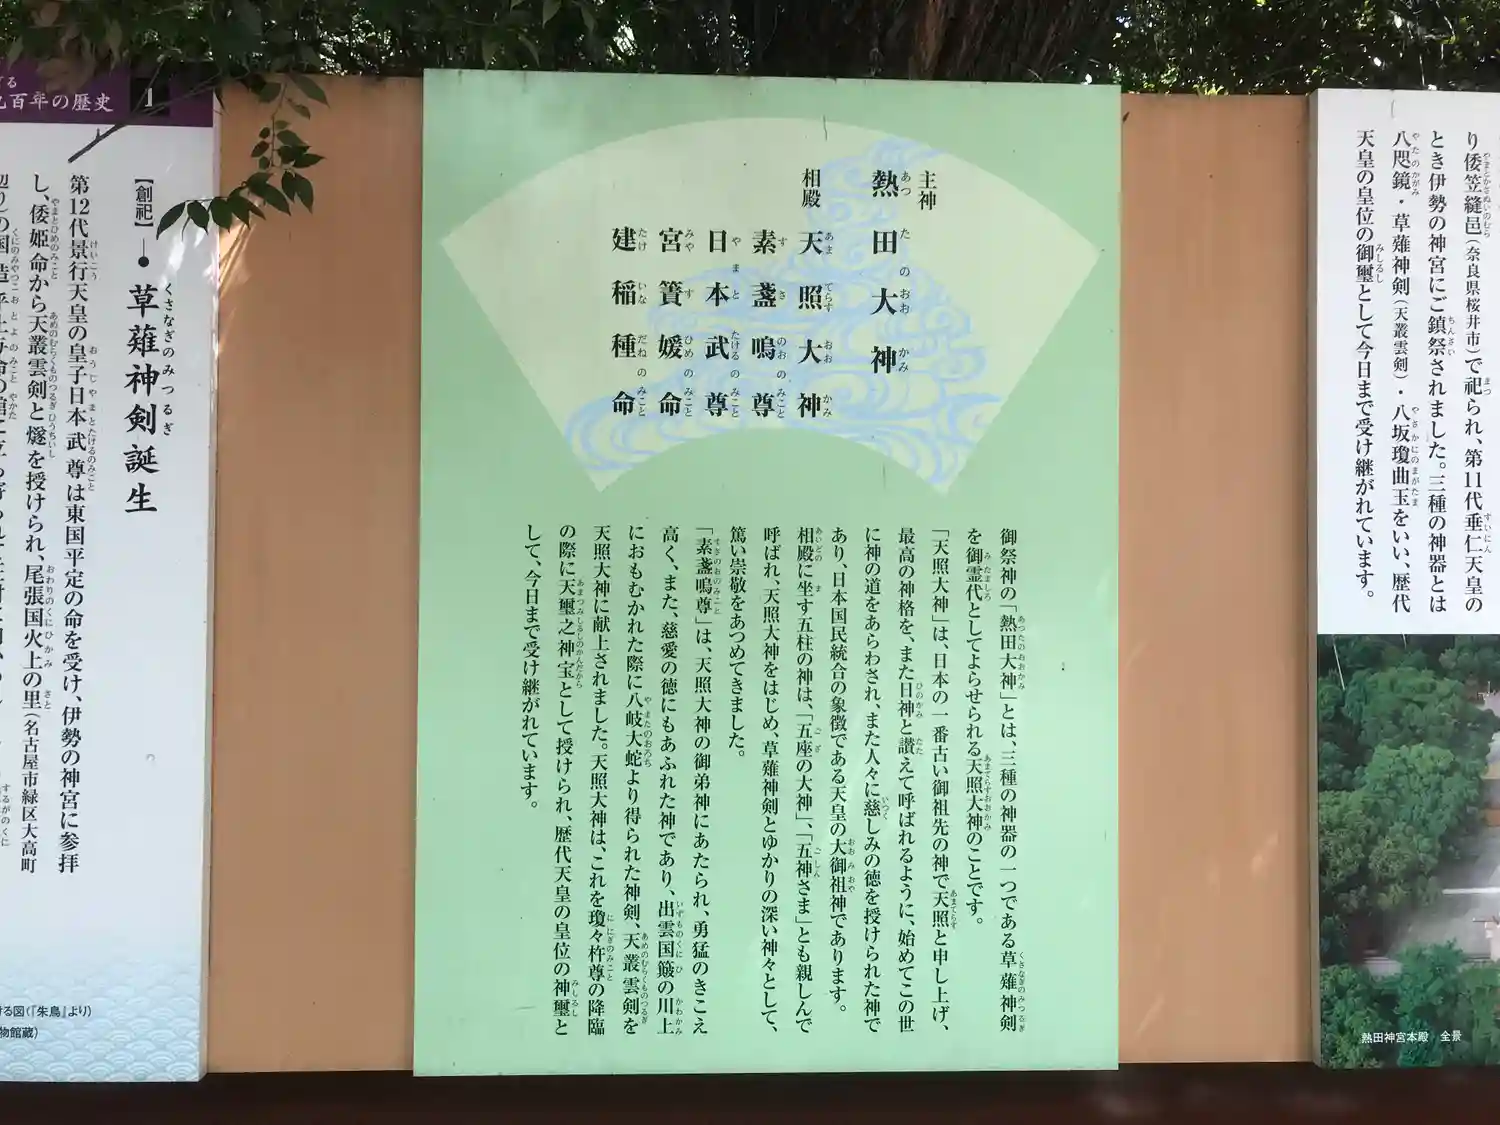 り倭笠縫邑(奈良県桜井市)で祀られ、第11代垂仁天皇の
とき伊勢の神宮にご鎮祭されました。三種の神器とは
八咫鏡・草薙神剣(天叢雲剣)・八坂瓊曲玉をいい、歴代
天皇の皇位の御璽として今日まで受け継がれています。
熱田神宮本殿 全景
主神
熱田大神
相殿
天照大神
素盞嗚尊
日本武尊
宮簀媛命
建稲種命
御祭神の「熱田大神」とは、三種の神器の一つである草薙神剣
を御霊代としてよらせられる天照大神のことです。
「天照大神」は、日本の一番古い御祖先の神で天照と申し上げ、
最高の神格を、また日神と讃えて呼ばれるように、始めてこの世
に神の道をあらわされ、また人々に慈しみの徳を授けられた神で
あり、日本国民統合の象徴である天皇の大御祖神であります。
相殿に坐す五柱の神は、「五座の大神」、「五神さま」とも親しんで
呼ばれ、天照大神をはじめ、草薙神剣とゆかりの深い神々として、
篤い崇敬をあつめてきました。
「素盞嗚尊」は、天照大神の御弟神にあたられ、勇猛のきこえ
高く、また、慈愛の徳にもあふれた神であり、出雲国簸の川上
におもむかれた際に八岐大蛇より得られた神剣、天叢雲剣を
天照大神に献上されました。天照大神は、これを瓊々杵尊の降臨
の際に天璽之神宝として授けられ、歴代天皇の皇位の神璽と
して、今日まで受け継がれています。
百年の歴史
【創祀】
草薙神剣誕生
第12代景行天皇の皇子日本武尊は東国平定の命を受け、伊勢の神宮に参拝
し、倭姫命から天叢雲剣と燧を授けられ、尾張国火上の里(名古屋市緑区大高町
ける図(『朱鳥』より)
物館蔵)